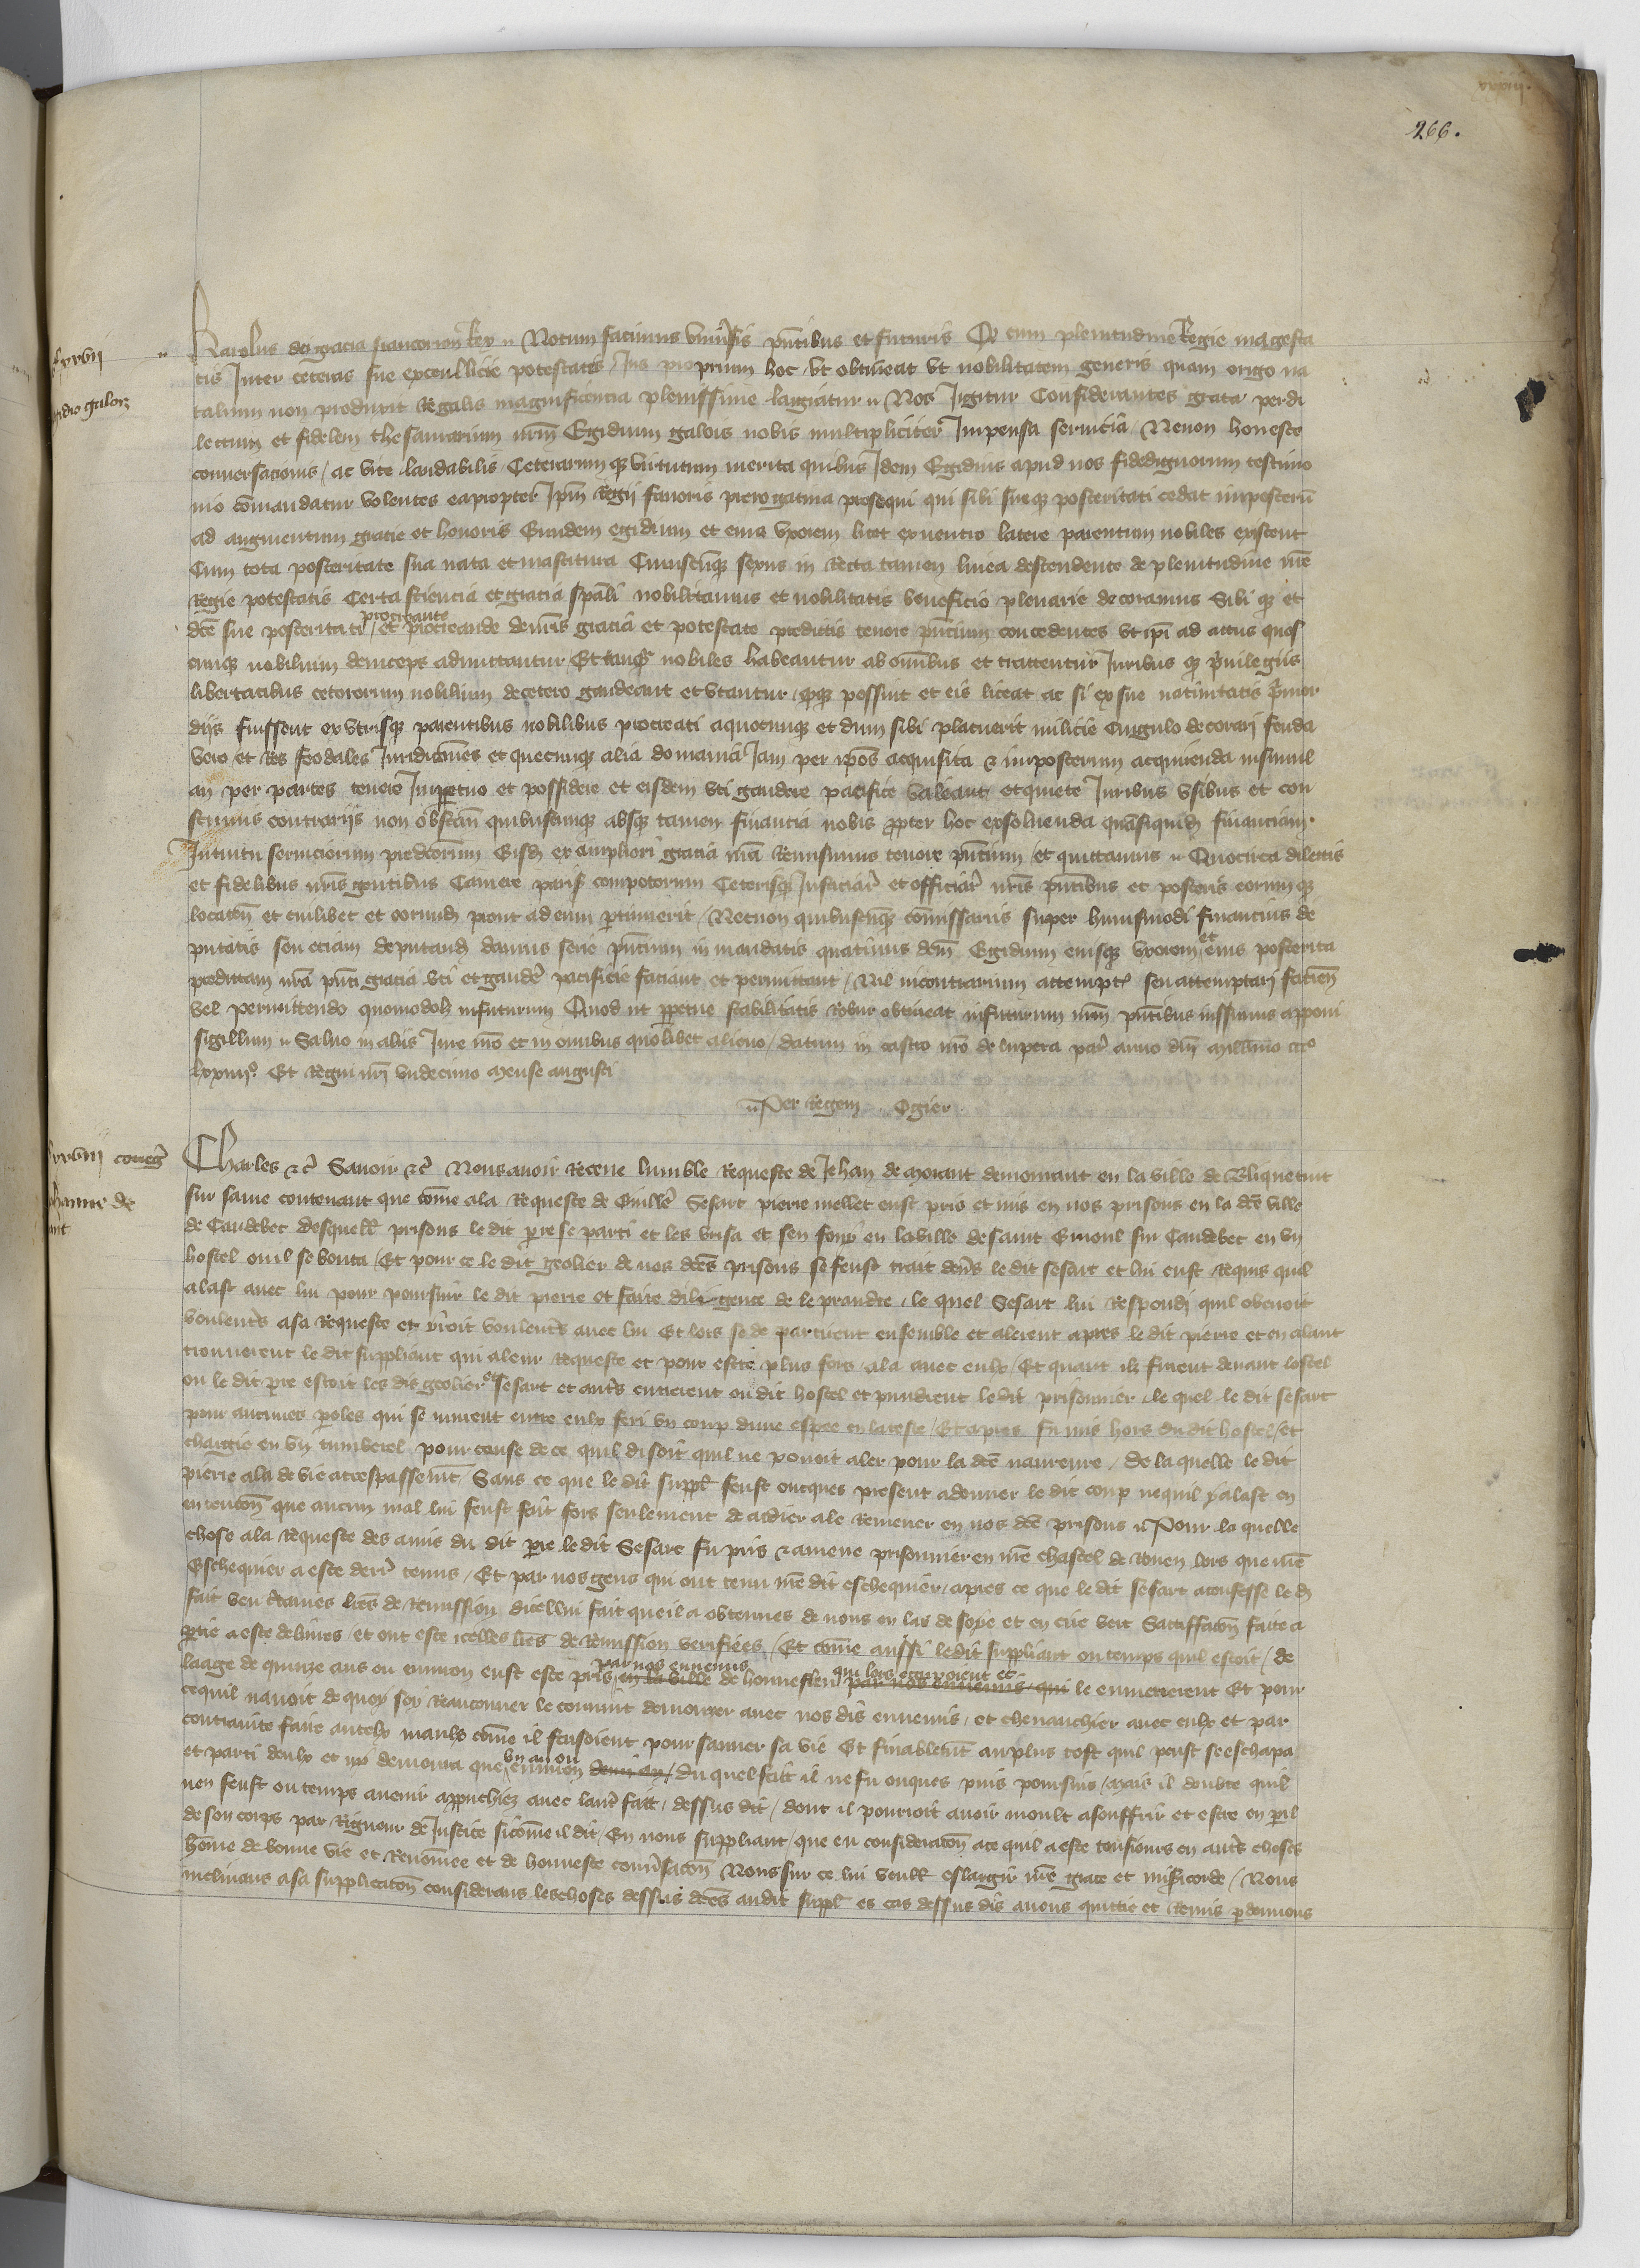 266.
Karolus dei gracia francorum Rex Notum facimus vniusis pntibus et futuris Q cum plenitudine Regie magesta
tis Inter ceteras sue excellicie potestatis Jus proprium hoc vt obtineat vt nobilitatem generis quam origo na
talium non produxit Regalis magnificencia plenissime largiatur Nos Igitur Considerantes grata per di
lectum et fidelem thesaurarium nrm Egidium galois nobis multipliciter Impensa seruicia Necnon honeste
conuersacionis ac vite laudabilis Ceterarum q virtutum merita quibus Idem Egidius apud nos fidedignorum testimo
nio comandatur volentes eapropter Ipm Regij fauoris prerogatiua prosequi qui sibi sueq posteritati cedat imposteru
ad augmentum gracie et honoris Eundem egidium et eius vxorem licet ex neutro latere parentum nobiles existent
Cum tota posteritate sua nata et nascitura Cuiuscuq sexus in Recta tamen linea descendente de plenitudine nre
Regie potestatis Certa sciencia et gracia spali nobilitamus et nobilitatis beneficio plenarie decoramus Sibi q et
procreante
dce sue posteritati et procreande de nris gracia et potestate predictis tenore pncium concedentes vt ipi ad actus quos
cunq nobilium deinceps admittantur Et tanq nobiles habeantur ab omnibus et tractentur Juribus q priuilegiis
libertatibus ceterorum nobilium decetero gaudeant et vtantur qq possint et eis liceat ac si ex sue natiuitatis primor
diis fuissent ex vtrisq parentibus nobilibus procreati aquocunq et dum sibi placuerit milicie cingulo decorari feuda
vero et Res feodales Juridiciones et quecunq alia domania Jam per ipos acquisita & imposterum acquirenda insimul
an per partes tenere Inppetuo et possidere et eisdem vti gaudere pacifice valeant et quiete Juribus vsibus et con
stitutis contrariis non obstan quibuscunq absq tamen financia nobis ppter hoc exsoluenda quasiquid financiam
Intuitu seruiciorum predcorum Eisd ex ampliori gracia nra Remisimus tenore pncium et quittamus Quocirca dilectis
et fidelibus nris gentibus Camere paris compotorum Ceterisq Justiciar et officiar nris pntibus et posteris eorum q
locaten et cuilibet et eorund prout ad eum ptinuerit Necnon quibuscuq comissariis super huiusmodi financiis de
putatis seu eciam deputand damus serie pncium in mandatis quatinus dcm Egidium eiusq vxorem et eius posterita
predictam nra pnti gracia vti et gauder pacifice faciant et permittant Nil incontrarium attempt seu attemptari facien
vel permittendo quomodol infuturum Quod ut ppetue stabilitatis Robur obtineat infuturum nrm pntibus iussimus apponi
sigillum Saluo in aliis Jure nro et in omnibus quolibet alieno datum in castro nro de lupera par anno dni millimo ccc
lxxiiij Et Regni nri vndecimo mense augusti
Per Regem Ogier
Charles &c Sauoir &c Nous auoir Receue lumble Requeste de Jehan de morant demourant en la ville de Bliquetuit
sur saine contenant que come ala Requeste de Guiller Sesart pierre mellet eust pris et mis en nos prisons en la dce ville
de Caudebec desquell prisons le dit pre se parti et les brisa et sen fouy en la ville de saint Ernoul sur Caudebec en vn
hostel ouil se bouta Et pour ce le dit geolier de nos dces prisons se feust trait deuers le dit sesart et lui eust Requis quil
alast auec lui pour poursuir le dit pierre et faire diligence de le prandre le quel Sesart lui Respondi quil obeiroit
voulents asa Requeste et yroit voulents auec lui Et lors se departirent ensemble et alerent apres le dit pierre et en alant
trouuerent le dit suppliant qui aleur Requeste et pour estre plus fors ala auec eulx Et quant ilz furent deuant lostel
ou le dit pre estoit les dis geolier et sesart et autrs entrerent oudit hostel et prindrent ledit prisonnier le quel le dit sesart
pour aucunes poles qui se murent entre eulx feri vn coup dune espee en la teste Et apres fu mis hors du dit hostel et
chargie en vn tumberel pour cause de ce quil disoit quil ne pouoit aler pour la dce naureure De la quelle le dit
pierre ala de vie atrespassemt Sans ce que le dit suppl feust oncques present adonner le dit coup nequil yalast en
entencon que aucun mal lui feust fait fors seulement de aidier ale Remener en nos dces prisons Pour la quelle
chose ala Requeste des amis du dit pre le dit Sesart fu pris & amene prisonnier en nre chastel de Rouen lors que nre
Eschequier a este derr tenus Et par nos gens qui ont tenu nre dit eschequier apres ce que le dit sesart aconfesse le d
fait veu ctaines lres de Remission dicellui fait que il a obtenues de nous en laz de soye et en cire vert Satisffacon faite a
ptie a este deliures et ont este icelles lres de Remission verifiees Et come aussi ledit suppliant ou temps quil estoit de
par nos ennemis qui lors occupoient et
laage de quinze ans ou enuiron eust este pris en la ville de honnefleu par nos ennemis qui le enmenerent Et pour
cequil nauoit de quoy soy Reanconner le conuint demourer auec nos dis ennemis et cheuauchier auec eulx et par
contrainte faire autelx maulx come il faisoient pour sauuer sa vie Et finablemt au plus tost quil peust se eschapa
vn an ou
et parti deulx et ny demoura que enuiron demi an du quel fait il ne fu onques puis poursuis mais il doubte quil
nen feust ou temps auenir appuchiez auec lautr fait dessus dit dont il pourroit auoir moult asouffrir et estre en pil
de son corps par Rigueur de Justice sicome il dit En nous suppliant que en consideracon ace quil a este tousiours en autrs choses
home de bonne vie et Renomee et de honneste conusacon Nous sur ce lui veull eslargir nre grace et misicorde Nous
inclinans asa supplicacon considerans les choses dessus dces audit suppl es cas dessus dis auons quittie et Remis pdonnons